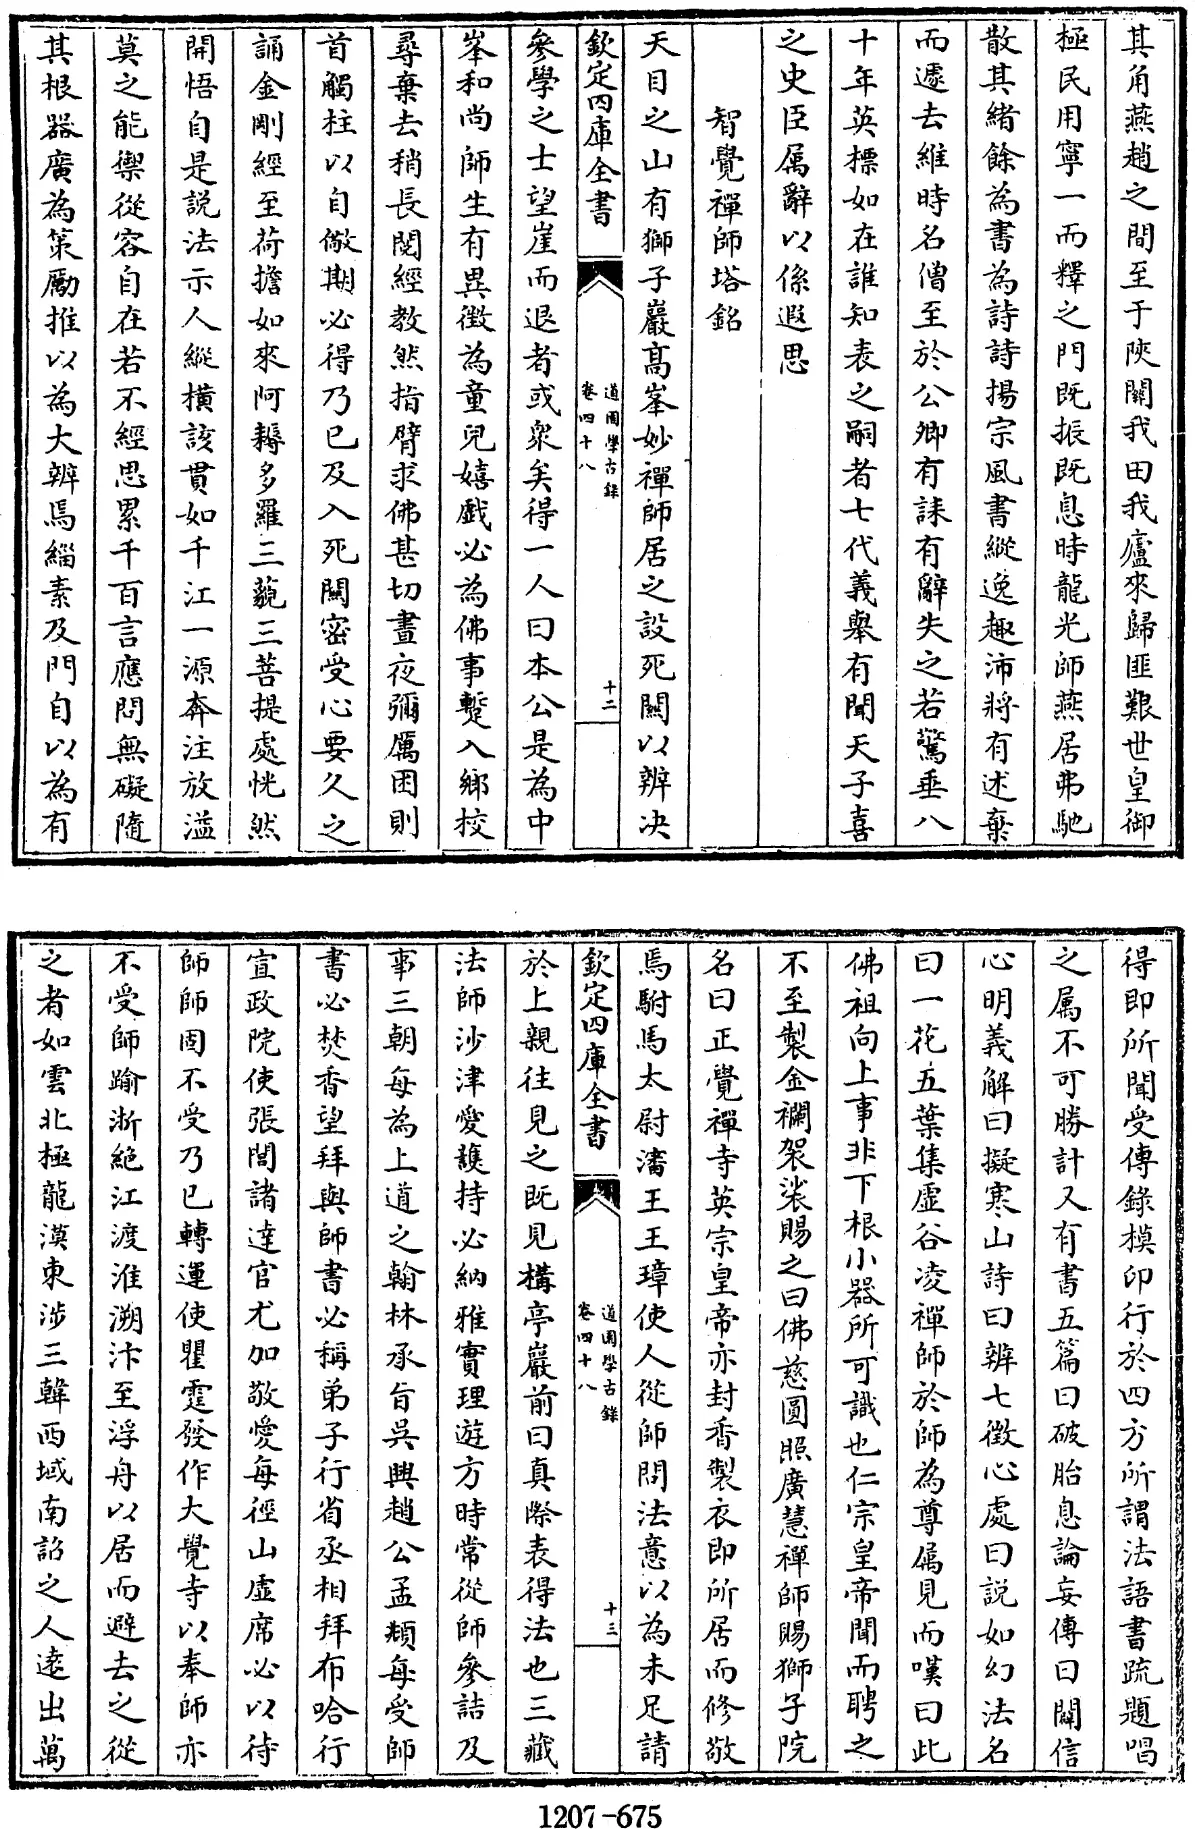 其角燕趙之間至于陜關我田我廬來歸匪艱世皇御
極民用寧一而釋之門既振既息時龍光師燕居弗馳
散其緒餘為書為詩詩揚宗風書縱逸趣沛將有述棄
而遽去維時名僧至於公卿有誄有辭失之若驚垂八
十年英標如在誰知表之嗣者七代義舉有聞天子喜
之史臣属辭以係遐思
智覺禪師塔銘
天目之山有獅子巖髙峯妙禪師居之設死關以辨决
欽定四庫全書
道園學古錄
卷四十八
十二
參學之士望崖而退者或衆矣得一人曰本公是為中
峯和尚師生有異徴為童兒嬉戲必為佛事蹔入鄉校
尋棄去稍長閱經教然指臂求佛甚切晝夜彌厲困則
首觸柱以自儆期必得乃已及入死關密受心要久之
誦金剛經至荷擔如來阿耨多羅三藐三菩提處恍然
開悟自是説法示人縱横該貫如千江一源奔注放溢
莫之能禦從容自在若不經思累千百言應問無礙隨
其根器廣為策勵推以為大辨焉緇素及門自以為有
得即所聞受傳錄模印行於四方所謂法語書疏題唱
之属不可勝計又有書五篇曰破胎息論妄傳曰闢信
心明義解曰擬寒山詩曰辨七徴心處曰説如幻法名
曰一花五葉集虛谷凌禪師於師為尊属見而嘆曰此
佛祖向上事非下根小器所可識也仁宗皇帝聞而聘之
不至製金襴袈裟賜之曰佛慈圓照廣慧禪師賜獅子院
名曰正覺禪寺英宗皇帝亦封香製衣即所居而修敬
焉駙馬太尉瀋王王璋使人從師問法意以為未足請
欽定四庫全書
道園學古錄
卷四十八
十三
於上親往見之既見構亭巖前曰真際表得法也三藏
法師沙津愛護持必納雅實理遊方時常從師參詰及
事三朝每為上道之翰林承旨吳興趙公孟頫每受師
書必焚香望拜與師書必稱弟子行省丞相拜布哈行
宣政院使張閭諸達官尤加敬愛每徑山虛席必以待
師師固不受乃已轉運使瞿霆發作大覺寺以奉師亦
不受師踰浙絶江渡淮溯汴至浮舟以居而避去之從
之者如雲北極龍漠東渉三韓西域南詔之人遠出萬
1207-675